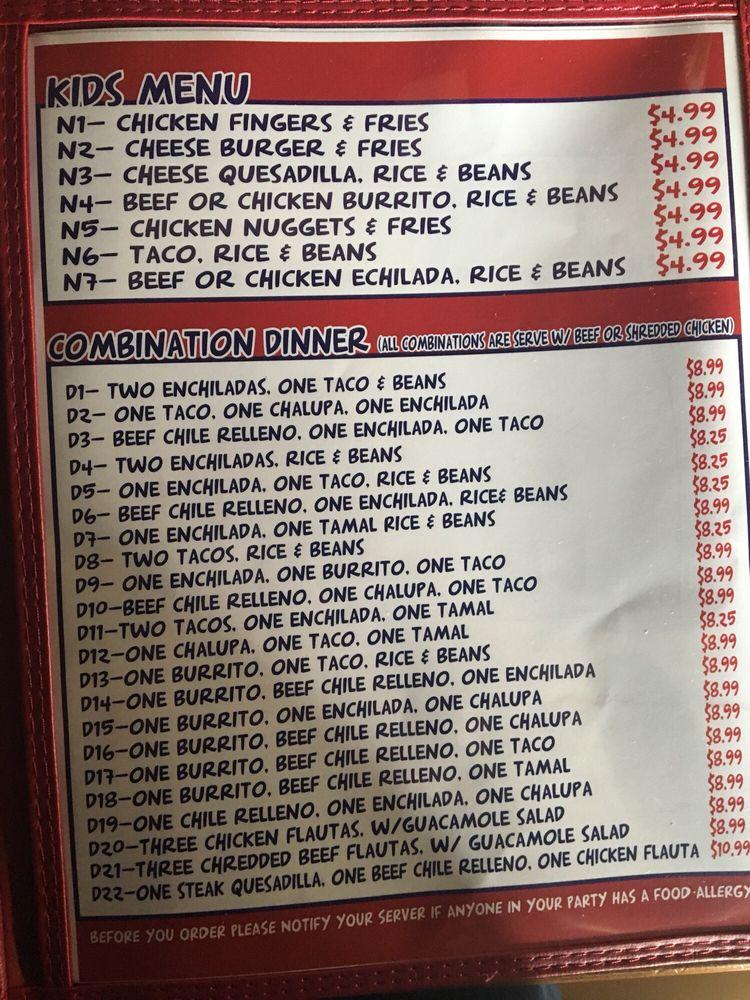 KIDS MENU
N1- CHICKEN FINGERS & FRIES $4.99
N2- CHEESE BURGER & FRIES $4.99
N3- CHEESE QUESADILLA, RICE & BEANS $4.99
N4- BEEF OR CHICKEN BURRITO, RICE & BEANS $4.99
N5- CHICKEN NUGGETS & FRIES $4.99
N6- TACO, RICE & BEANS $4.99
N7- BEEF OR CHICKEN ECHILADA, RICE & BEANS $4.99
COMBINATION DINNER (ALL COMBINATIONS ARE SERVE W/ BEEF OR SHREDDED CHICKEN)
D1- TWO ENCHILADAS, ONE TACO & BEANS $8.99
D2- ONE TACO, ONE CHALUPA, ONE ENCHILADA $8.99
D3- BEEF CHILE RELLENO, ONE ENCHILADA, ONE TACO $8.99
D4- TWO ENCHILADAS, RICE & BEANS $8.25
D5- ONE ENCHILADA, ONE TACO, RICE & BEANS $8.25
D6- BEEF CHILE RELLENO, ONE ENCHILADA, RICE& BEANS $8.25
D7- ONE ENCHILADA, ONE TAMAL RICE & BEANS $8.99
D8- TWO TACOS, RICE & BEANS $8.25
D9- ONE ENCHILADA, ONE BURRITO, ONE TACO $8.99
D10-BEEF CHILE RELLENO, ONE CHALUPA, ONE TACO $8.99
D11-TWO TACOS, ONE ENCHILADA, ONE TAMAL $8.99
D12-ONE CHALUPA, ONE TACO, ONE TAMAL $8.25
D13-ONE BURRITO, ONE TACO, RICE & BEANS $8.99
D14-ONE BURRITO, BEEF CHILE RELLENO, ONE ENCHILADA $8.99
D15-ONE BURRITO, ONE ENCHILADA, ONE CHALUPA $8.99
D16-ONE BURRITO, BEEF CHILE RELLENO, ONE CHALUPA $8.99
D17-ONE BURRITO, BEEF CHILE RELLENO, ONE TACO $8.99
D18-ONE BURRITO, BEEF CHILE RELLENO, ONE TAMAL $8.99
D19-ONE CHILE RELLENO, ONE ENCHILADA, ONE CHALUPA $8.99
D20-THREE CHICKEN FLAUTAS, W/GUACAMOLE SALAD $8.99
D21-THREE CHREDDED BEEF FLAUTAS, W/ GUACAMOLE SALAD $8.99
D22-ONE STEAK QUESADILLA, ONE BEEF CHILE RELLENO, ONE CHICKEN FLAUTA $10.99
BEFORE YOU ORDER PLEASE NOTIFY YOUR SERVER IF ANYONE IN YOUR PARTY HAS A FOOD ALLERGY